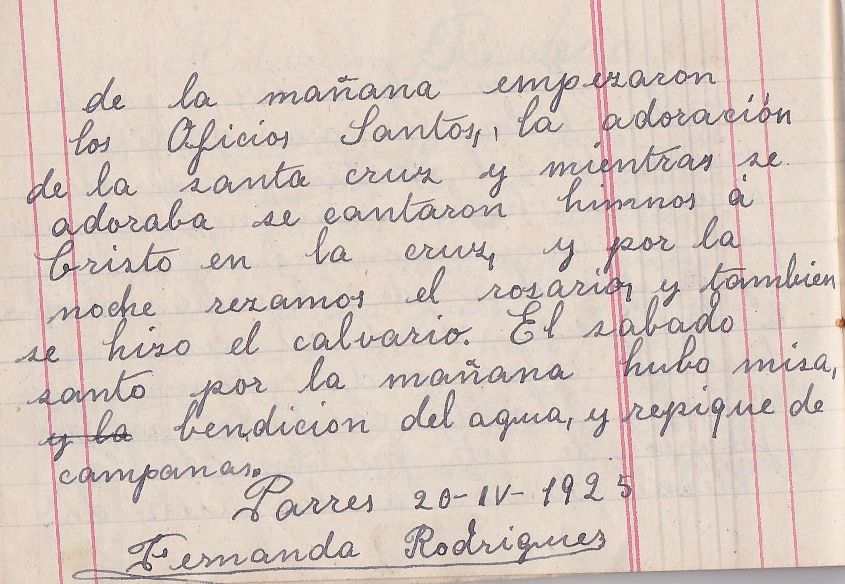 de la mañana empezaron
los Oficios Santos, la adoración
de la santa cruz y mientras se
adoraba se cantaron himnos á
Cristo en la cruz, y por la
noche rezamos el rosario, y tambien
se hizo el calvario. El sabado
santo por la mañana hubo misa,
y la bendicion del agua, y repique de
campanas.
Parres 20-IV-1925
Fernanda Rodriguez